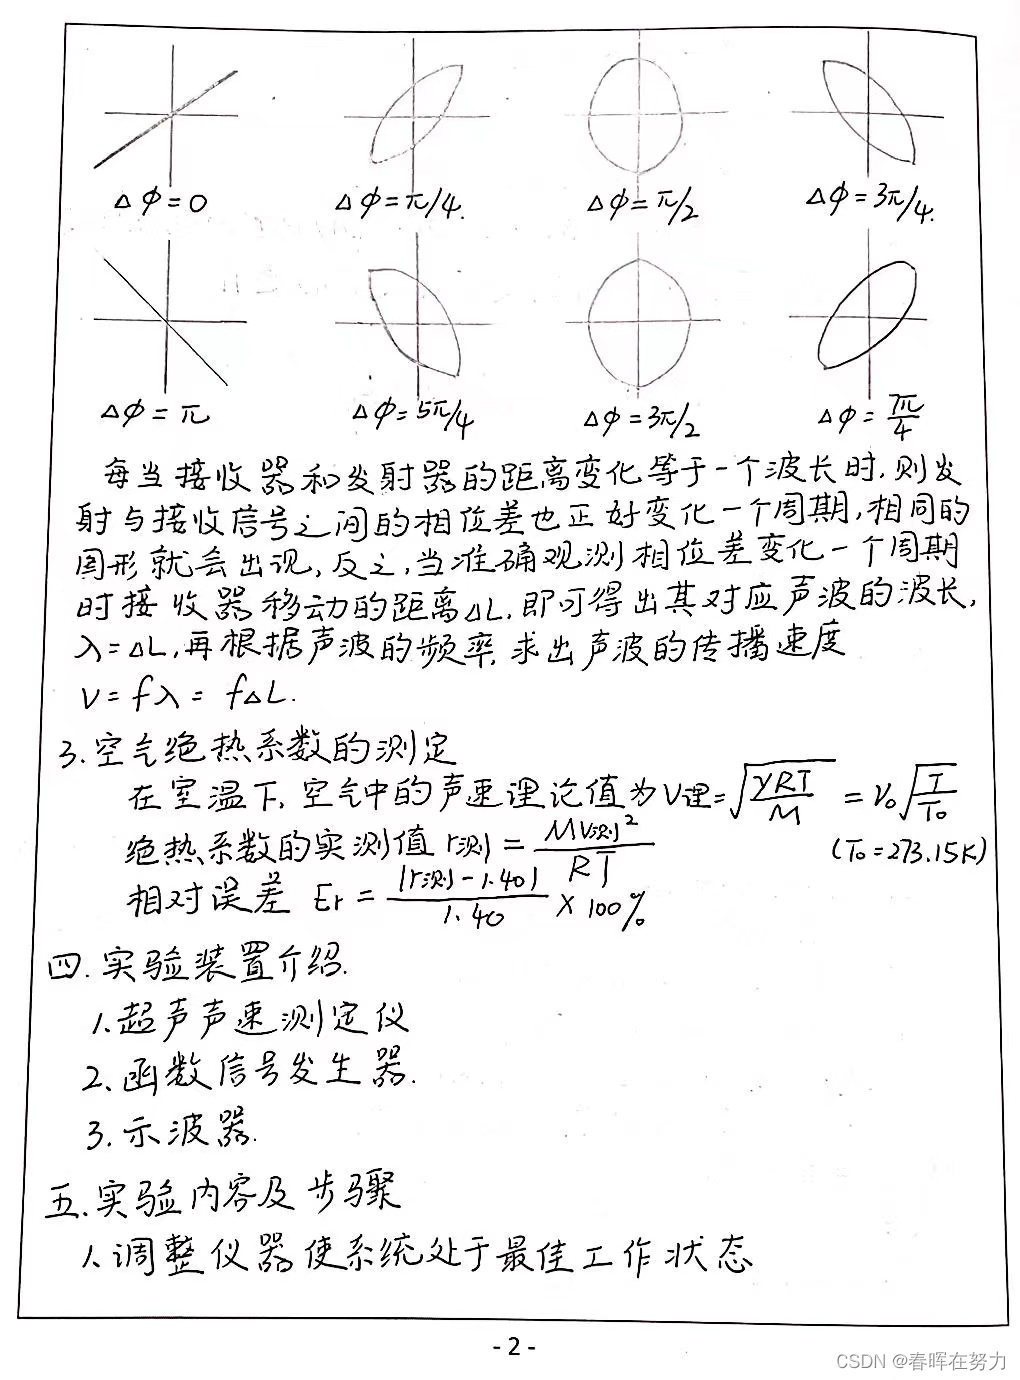 Δφ=0 Δφ=π/4. Δφ=π/2 Δφ=3π/4.
Δφ=π Δφ=5π/4 Δφ=3π/2 Δφ=7π/4
每当接收器和发射器的距离变化等于一个波长时,则发
射与接收信号之间的相位差也正好变化一个周期,相同的
图形就会出现,反之,当准确观测相位差变化一个周期
时接收器移动的距离ΔL,即可得出其对应声波的波长,
λ=ΔL,再根据声波的频率,求出声波的传播速度
V=fλ=fΔL.
3.空气绝热系数的测定
在室温下,空气中的声速理论值为V理=√(γRT/M) =V₀√(T/T₀)
绝热系数的实测值 r测=MV测²/RT (T₀=273.15K)
相对误差 Er=|r测-1.40|/1.40×100%
四.实验装置介绍.
1.超声声速测定仪
2、函数信号发生器.
3.示波器.
五.实验内容及步骤
1.调整仪器使系统处于最佳工作状态
- 2 -
CSDN @春晖在努力